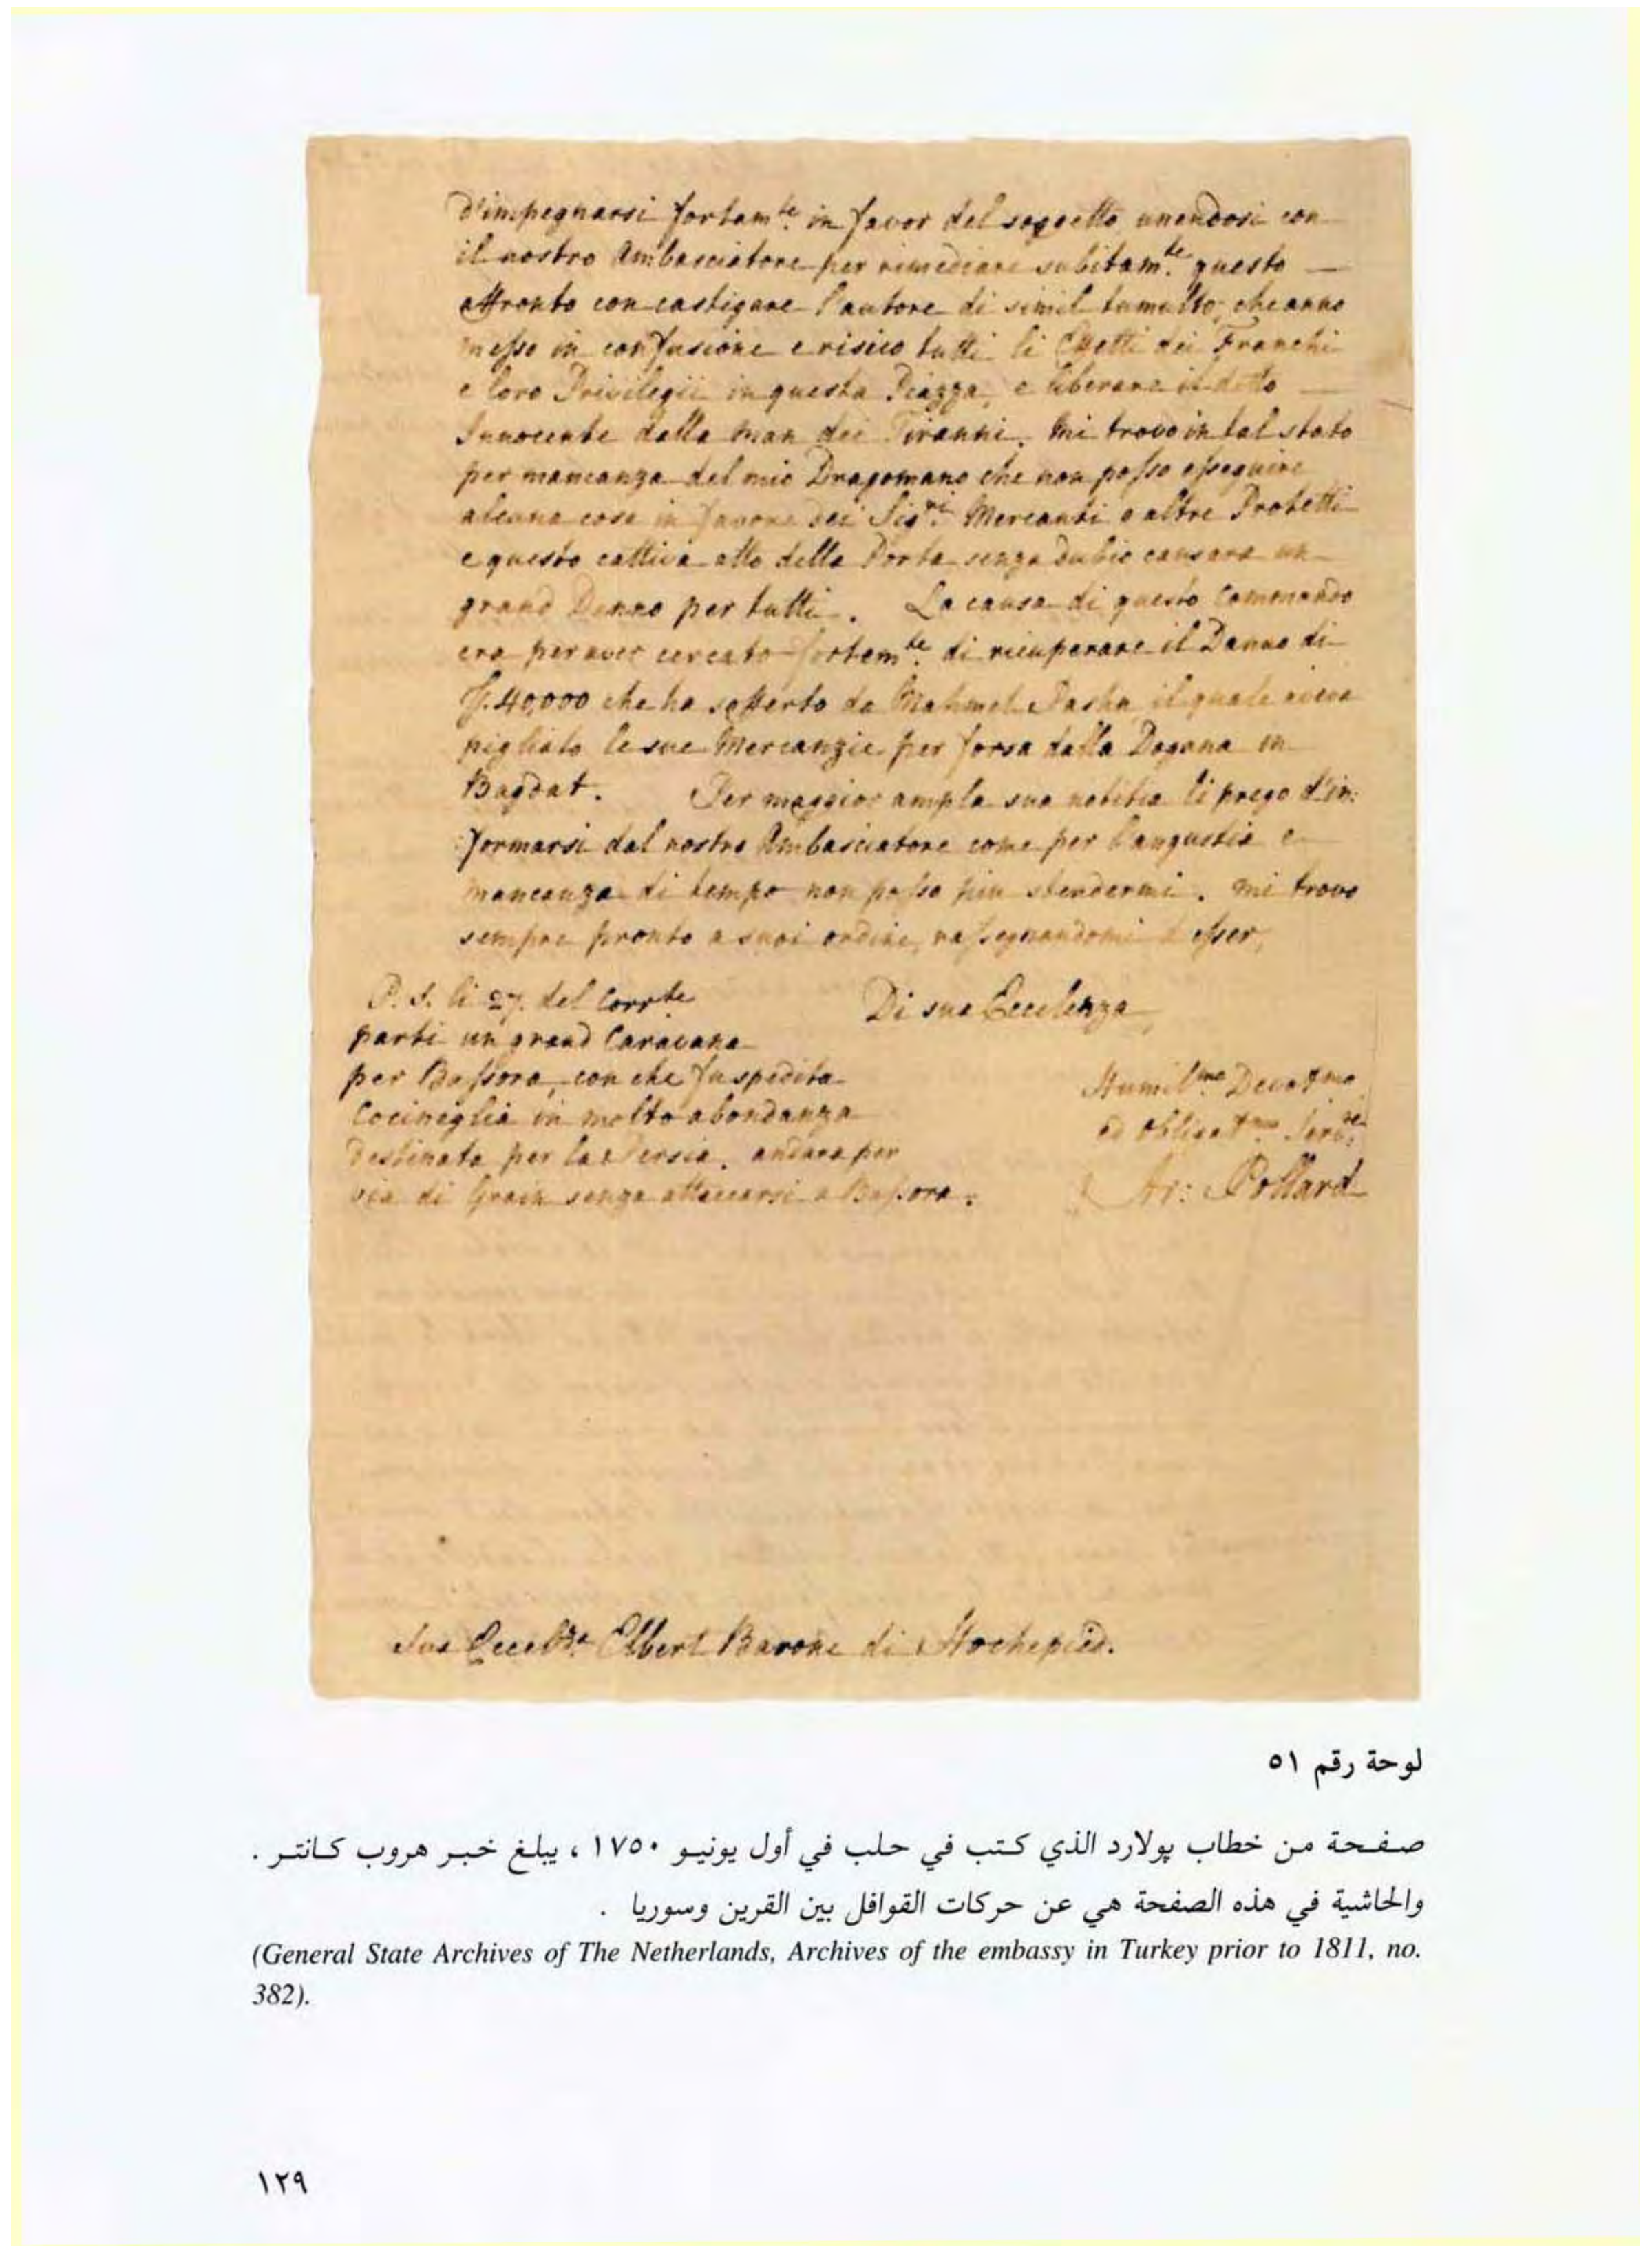 d'impegnarsi fortam.te in favor del soggetto unendosi con
il nostro Ambasciatore per rimediare subitam.te questo
affronto con castigare l'autore di simil tumulto, che anno
messo in confusione e risico tutti li Effetti dei Franchi
e loro Privilegii in questa Piazza, e liberare il detto
Innocente dalla man dei Tiranni. Mi trovo in tal stato
per mancanza del mio Dragomano che non posso esseguire
alcuna cosa in favore dei Sig.ri Mercanti o altre Protetti
e questo cattiva atto della Porta senza dubio causara un
grand Danno per tutti. La causa di questo Commando
era per aver cercato fortem.te di ricuperare il Danno di
40,000 che ha sofferto da Mahmet Pasha il quale aveva
pigliato le sue Mercanzie per forsa dalla Dogana in
Bagdat. Per maggior ampla sua notitia li prego d'in:
:formarsi dal nostro Ambasciatore come per l'angustia e
mancanza di tempo non posso piu stendermi. Mi trovo
sempre pronto a suoi ordini, rassegnandomi d'esser,
Di sua Eccelenza,
Humil.mo Devot.mo
ed obligat.mo Serv.re
Ar: Pollard
P.S. li 27. del Corr.te
parti un grand Caravana
per Bassora, con che fu spedita
Cociniglia in molto abondanza
destinata per la Persia, andara per
via di Grain senza attaccarsi a Bassora.
Sua Eccel.za Elbert Barone di Hochepied.
لوحة رقم ٥١
صفحة من خطاب پولارد الذي كتب في حلب في أول يونيو ١٧٥٠ ، يبلغ خبر هروب كانتر .
والحاشية في هذه الصفحة هي عن حركات القوافل بين القرين وسوريا .
(General State Archives of The Netherlands, Archives of the embassy in Turkey prior to 1811, no.
382).
١٢٩